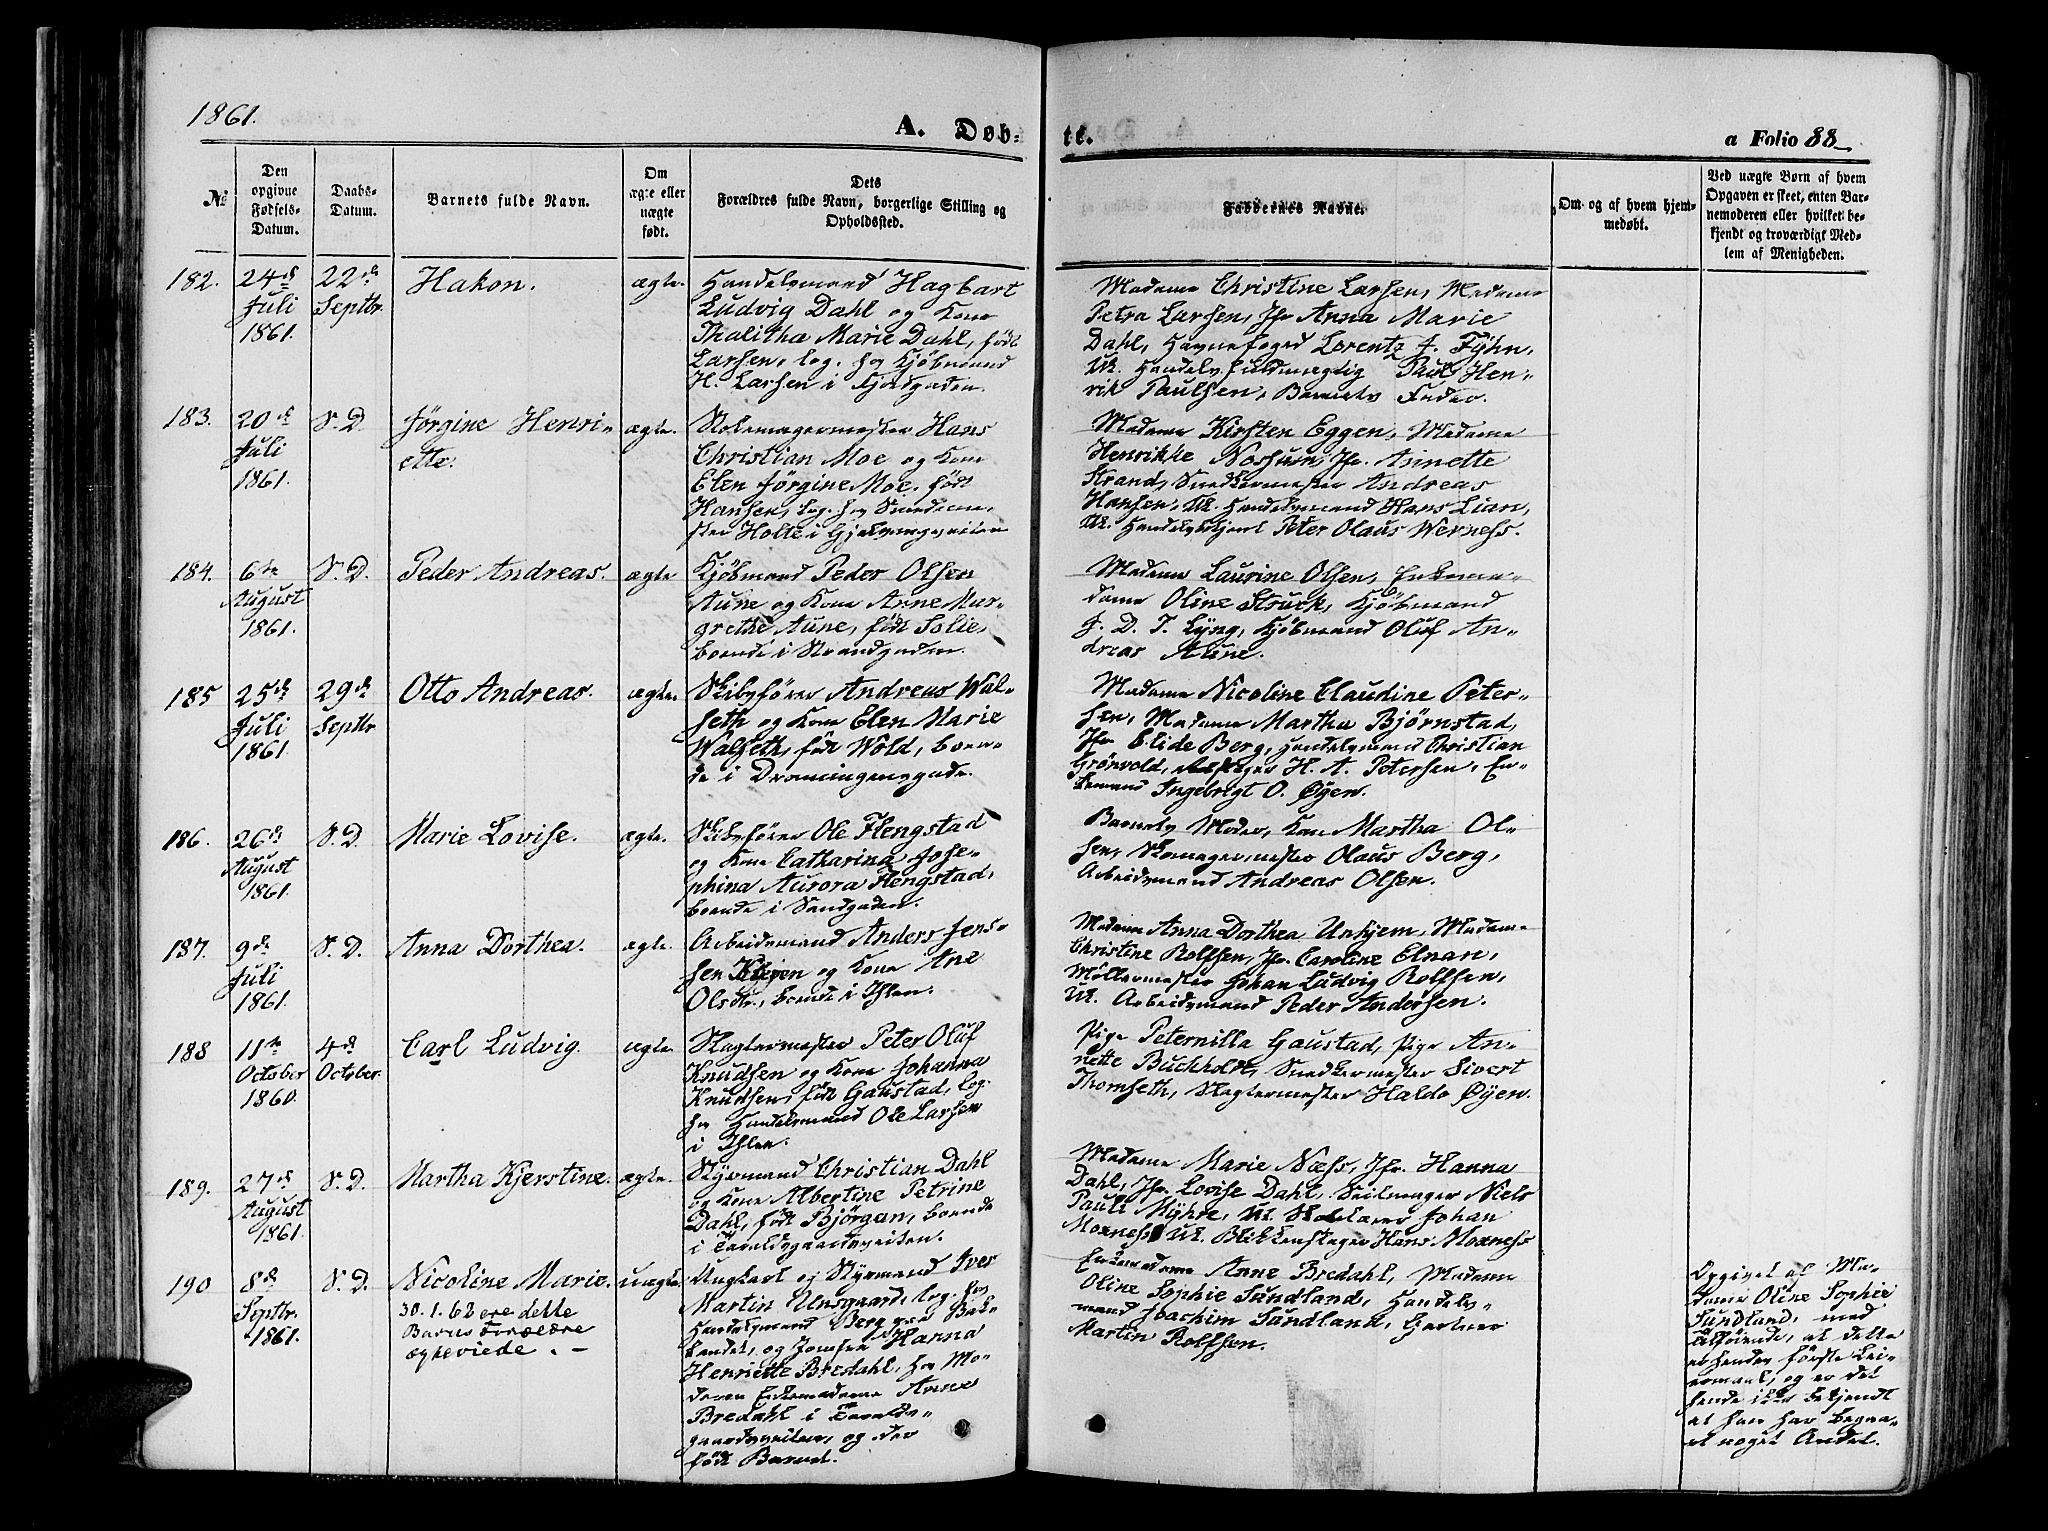 1861.
A. Døb-
te.
a Folio 88
No
Den opgivne Fødsels-Datum.
Daabs-Datum.
Barnets fulde Navn.
Om ægte eller uægte født.
Dets Forældres fulde Navn, borgerlige Stilling og Opholdssted.
Faddernes Navne.
Om og af hvem hjem-medøbt.
Ved uægte Børn af hvem Opgaven er skeet, enten Bar-nemoderen eller hvilket be-kjendt og troværdigt Med-lem af Menigheden.
182.
24de
Juli
1861.
22de
Septbr.
Hakon.
ægte.
Handelsmand Hagbart
Ludvig Dahl og Kone
Thalitha Marie Dahl, født
Larsen, log. hos Kjøbmand
H. Larsen i Fjordgaden.
Madame Christine Larsen, Madame
Petra Larsen, Jfr Anna Marie
Dahl, Havnefoged Lorentz J. Fyhn,
Uk. Handelsfuldmægtig Paul Hen-
rik Paulsen, Barnets Fader.
183.
20de
Juli
1861.
S. D.
Jørgine Henri-
ette.
ægte.
Stolemagermester Hans
Christian Moe og Kone
Elen Jørgine Moe, født
Hansen, log. hos Snedkerme-
ster Holte i
Madame Kirsten Eggen, Madame
Henrikke Noshum, Jfr. Annette
Strand, Snedkermester Andreas
Hansen, Uk. Handelsmand Hans Lian,
Uk. Handelsbetjent Peter Olaus Werness.
184.
6te
August
1861.
S. D.
Peder Andreas.
ægte
Kjøbmand Peder Olsen
Aune og Kone Anne Mar-
grethe Aune, født Solie,
boende i Strandgaden.
Madame Laurine Olsen, Enkema-
dame Oline Struck, Kjøbmand
J. D. T. Lyng, Kjøbmand Oluf An-
dreas Aune.
185
25de
Juli
1861.
29de
Septbr
Otto Andreas.
ægte.
Skibsfører Andreas Wal-
seth og Kone Elen Marie
Walseth, født Wold, boen-
de i Dronningensgade.
Madame Nicoline Claudine Peter-
sen, Madame Martha Bjørnstad,
Jfr Elide Berg, Handelsmand Christian
Grönvold, H. A. Petersen, En-
kemand Ingebrigt O. Øyen.
186.
26de
August
1861.
S. D.
Marie Lovise.
ægte.
Skibsfører Ole Flengstad
og Kone Catharina Jose-
phina Aurora Flengstad,
boende i Sandgaden.
Barnets Moder, Kone Martha Ol-
sen, Skomagermester Olaus Berg,
Arbeidsmand Andreas Olsen.
187.
9de
Juli
1861.
S. D.
Anna Dorthea.
ægte.
Arbeidsmand Anders Jens-
sen og Kone Ane
Olsdtr., boende i Ihlen.
Madame Anna Dorthea Unhjem, Madame
Christine Rolfsen, Jfr. Caroline Elnan,
Møllermester Johan Ludvig Rolfsen,
Uk. Arbeidsmand Peder Andersen.
188
11te
October
1860.
4de
October.
Carl Ludvig.
ægte.
Slagtermester Peter Oluf
Knudsen og Kone Johanna
Knudsen, født Gaustad, log.
hos Handelsmand Ole Larsen
i Ihlen.
Pige Peternille Gaustad, Pige An-
nette Buchholt, Snedkermester Sivert
Thomseth, Slagtermester Haldo Øyen.
189.
27de
August
1861.
S. D.
Martha Kjerstine.
ægte.
Styrmand Christian Dahl
og Kone Albertine Petrine
Dahl, født Bjørgan, boende
i
Madame Marie Næss, Jfr. Hanna
Dahl, Jfr. Lovise Dahl, Seilmager Niels
Pauli Myhre, Uk. Johan
Moxness, Uk. Blikkenslager Hans Moxness
190
8de
Septbr.
1861.
S. D.
Nicoline Marie.
30.1.62 ere dette
Barns Forældre
ægteviede. -
uægte.
Ungkarl og Styrmand Iver
Martin Unsgaard, log. hos
Handelsmand Berg paa Bak-
landet, og Jomfru Hanna
Henriette Bredahl, hos Mo-
deren Enkemadame Anne
Bredahl i
og der
født Barnet.
Enkemadame Anne Bredahl, Madame
Oline Sophie Sundland, Handels-
mand Joachim Sundland, Gartner
Martin Rolfsen.
Opgivet af Ma-
dame Oline Sophie
Sundland, med
Tilføiende, at dette
er hendes første Lei-
ermaal, og er det
hende ikke bekjendt
at han har begaa-
et noget Andet.